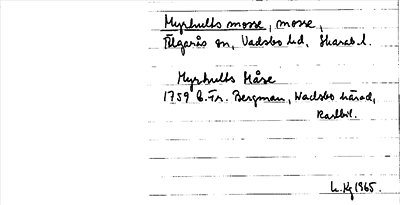 Myrhults mosse, mosse,
Älgarås sn, Vadsbo hd, Skarab. l.
Myrhults Måse
1759 C. Fr. Bergman, Wadsbo härad,
Kartbil.
L. Kg 1965.